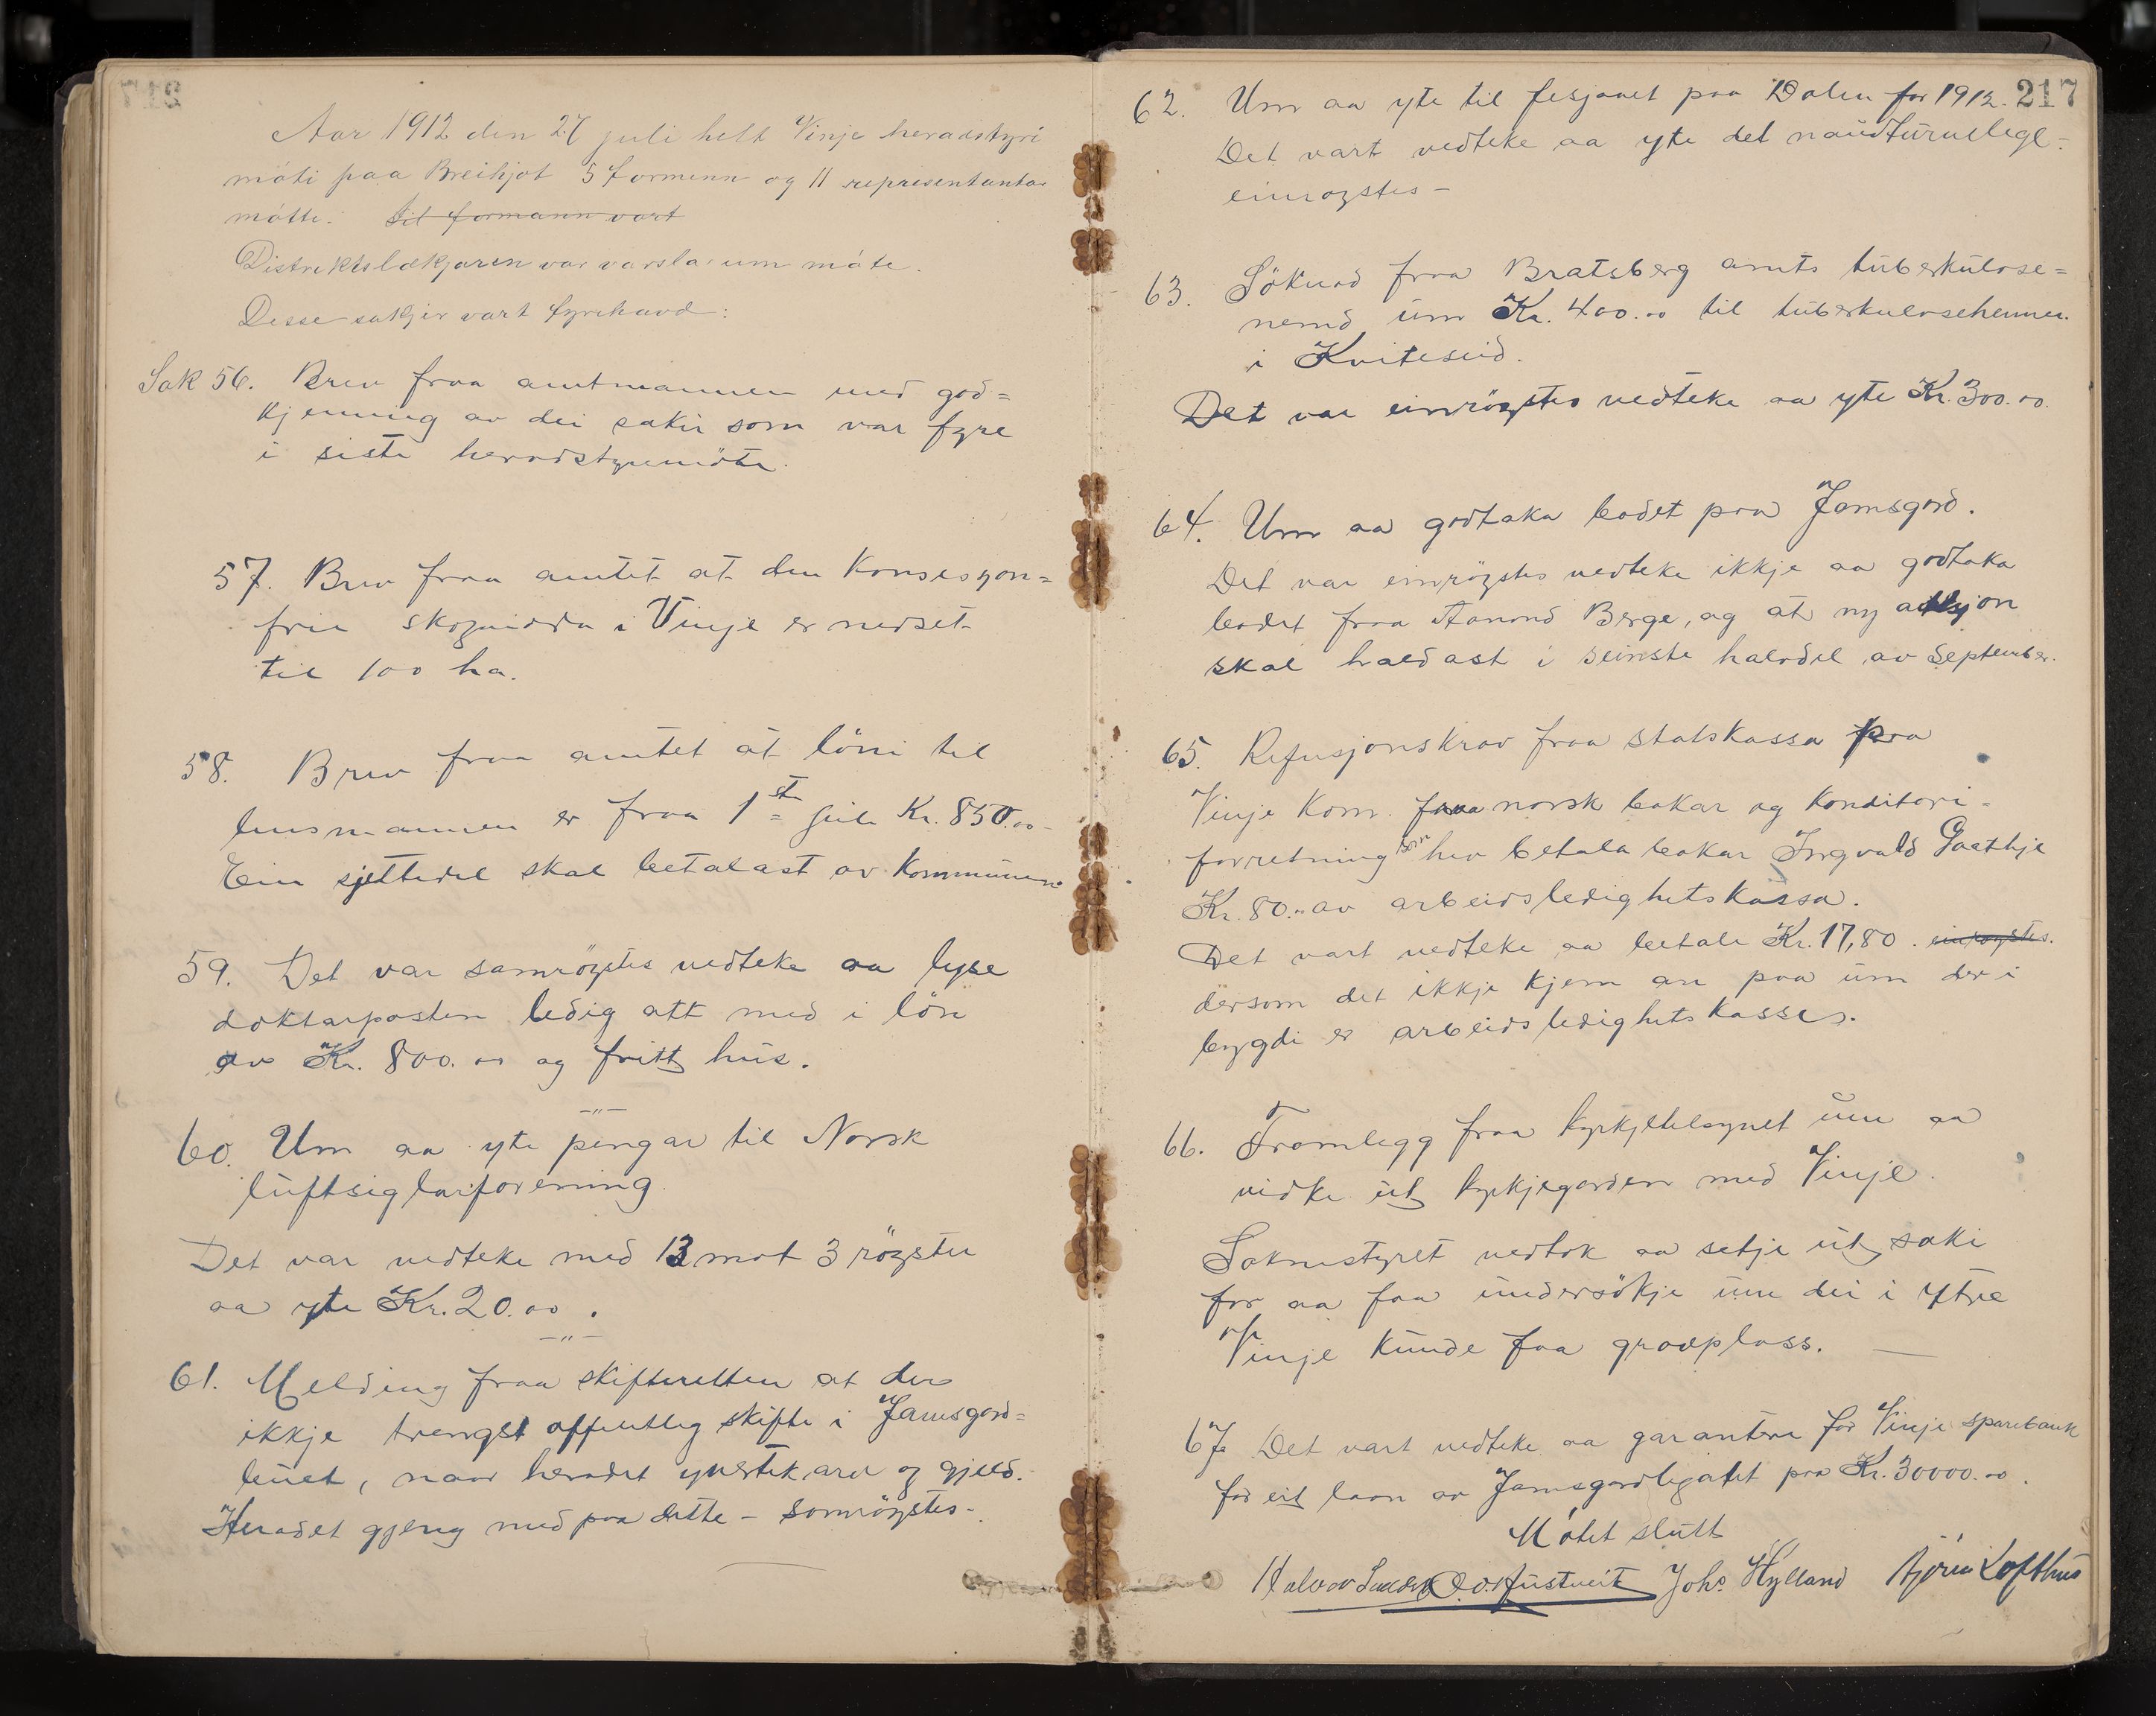 Aar 1912 den 27 juli helt Vinje heradstyri
möti paa Breihjot 5 formenn og 11 representantar
mötte. Til formann vart
Distriktslækjaren var varsla um möte.
Desse sakjir vart fyrehavd:
Sak 56. Brev fraa amtmannen med god=
kjenning av dei sakir som var fyre
i siste heradstyremöte.
57. Brev fraa amtet at den konsesjon=
frie skogvidda i Vinje er nedset
til 100 ha.
58. Brev fraa amtet at löni til
lensmannen er fraa 1ste juli Kr. 850.00
Ein sjettedel skal betalast av kommunen.
59. Det var samröystes vedteke aa lyse
doktarposten ledig att med i lön
av Kr. 800.00 og fritt hus.
—"—
60. Um aa yte pengar til Norsk
luftsiglarforening.
Det var vedteke med 13 mot 3 röyster
aa yte Kr. 20.00.
—"—
61. Melding fraa skifteretten at der
ikkje trengst offentleg skifte i Jamsgard=
buet, naar heradet yvertek arv og gjeld.
Heradet gjeng med paa dette – samröystes.
217
62. Um aa yte til fesjaaet paa Dalen for 1912.
Det vart vedteke aa yte det naudturvelege –
einröystes –
63. Söknad fraa Bratsberg amts tuberkulose=
nemd um Kr. 400.00 til tuberkuloseheimen
i Kviteseid.
Det var einröystes vedteke aa yte Kr. 300.00.
64. Um aa godtaka bodet paa Jamsgard.
Det var einröystes vedteke ikkje aa godtaka
bodet fraa Aanond Berge, og at ny auksjon
skal haldast i seinste halvdel av September.
65. Refusjonskrav fraa statskassa paa
Vinje Kom. fraa norsk bakar og konditori=
forretning som hev betala bakar Ingvald
Kr. 80.00 av arbeidsledighetskassa.
Det vart vedteke aa betale Kr. 17,80. einröystes.
dersom det ikkje kjem an paa um der i
bygdi er arbeidsledighetskasser.
66. Framlegg fraa kyrkjetilsynet um aa
vidke ut kyrkjegarden med Vinje.
Soknestyret vedtok aa setje ut saki
for aa faa undersökje um dei i ytre
Vinje kunde faa gravplass. —
67. Det vart vedteke aa garantere for Vinje sparebank
for eit laan av Jamsgardlegatet paa Kr. 30000.00.
Mötet slutt
Halvor O. Justveit Johs. Hylland Björn Lofthus